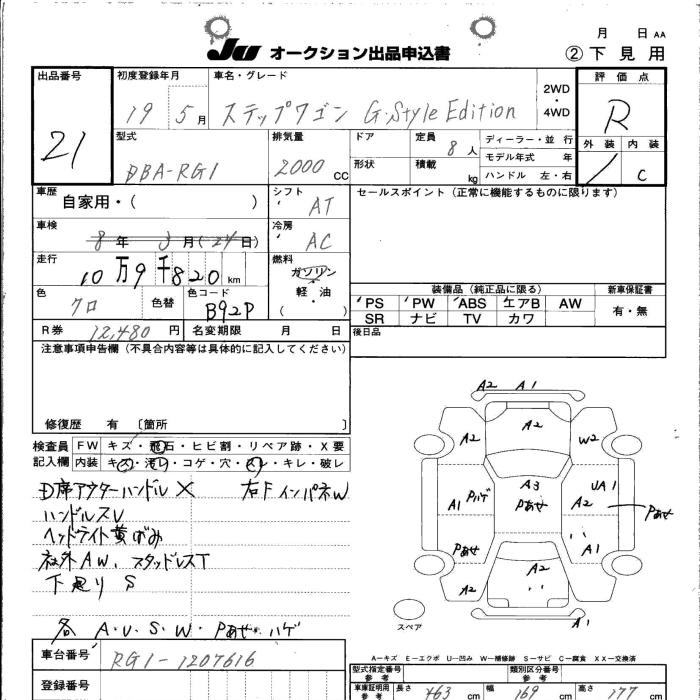 月 日 AA
JU オークション出品申込書 ②下見用
出品番号 初度登録年月 車名・グレード 2WD・4WD 評価点
21 19 5月 ステップワゴン G・Style Edition R
型式 排気量 ドア 定員 ディーラー・並行 外装 内装
DBA-RG1 2000 CC 形状 8人 モデル年式 年 C
積載 kg ハンドル 左・右
車歴 シフト セールスポイント(正常に機能するものに限ります)
自家用・( ) AT
車検 冷房
8年 3月(24日) AC
走行 燃料
10万9千820km ガソリン
軽・油
( )
色 色替 色コード
クロ B92P
装備品(純正品に限る) 新車保証書
PS PW ABS エアB AW 有・無
SR ナビ TV カワ
R券 12,480円 名変期限 月 日 後日品
注意事項申告欄(不具合内容等は具体的に記入してください)
修復歴 有 〔箇所 〕
検査員 FW キズ・飛石・ヒビ割・リペア跡・X要
記入欄 内装 キズ・汚レ・コゲ・穴・スレ・キレ・破レ
D席アウターハンドルX 右FインパネW
ハンドルスレ
ヘッドライト黄ばみ
社外AW、スタッドレスT
下廻り S
各 A・U・S・W・Pあせ・ハゲ
A2 A1
A2 A2 W2
A3
Pあせ
A1 Pハゲ UA1
A2 Pあせ
Pあせ A1
A2 A2
A1
スペア
A=キズ E=エクボ U=凹み W=補修跡 S=サビ C=腐食 XX=交換済
車台番号 RG1-1207616
型式指定番号 参考 類別区分番号 参考
登録番号
車庫証明用 参考 長さ 463 cm 幅 169 cm 高さ 177 cm